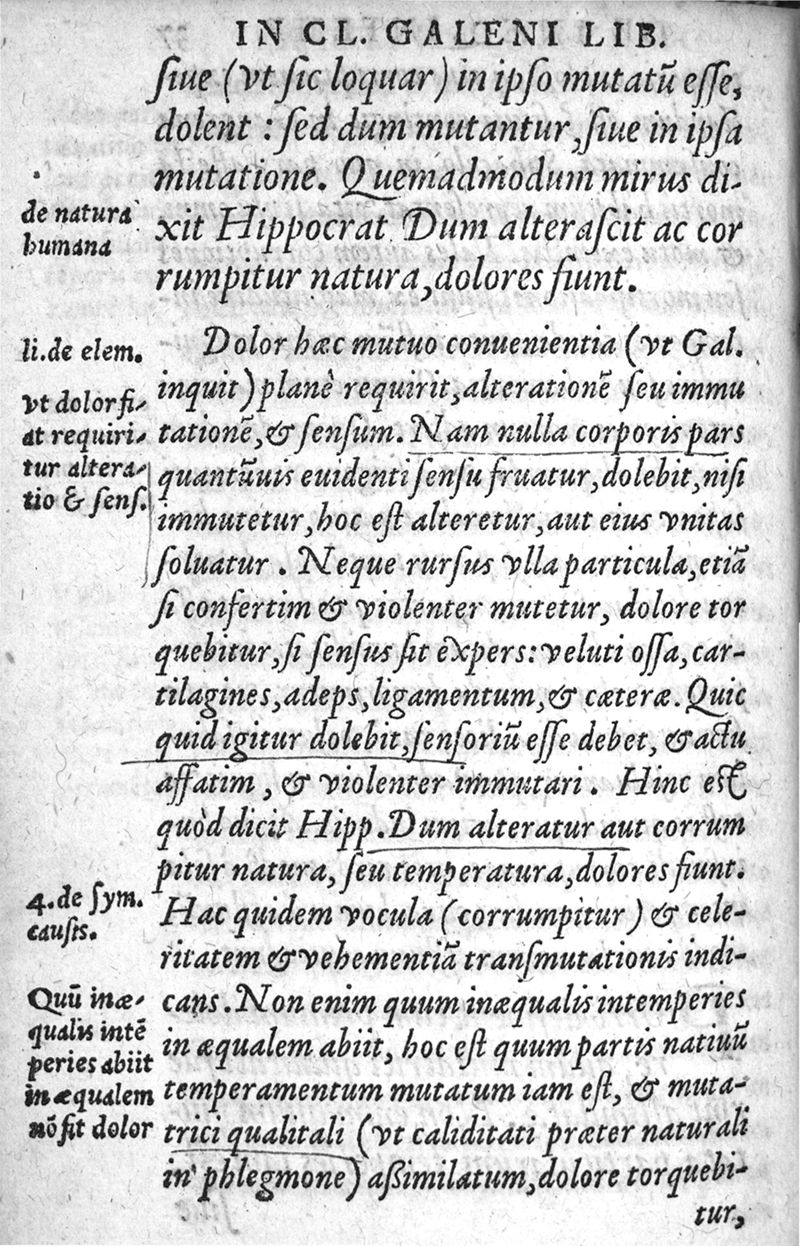 IN CL. GALENI LIB.
ſiue (vt ſic loquar) in ipſo mutatū eſſe,
dolent : ſed dum mutantur, ſiue in ipſa
mutatione. Quemadmodum mirus di-
xit Hippocrat Dum alteraſcit ac cor
rumpitur natura, dolores fiunt.
de natura
humana
Dolor hæc mutuo conuenientia (vt Gal.
inquit) planè requirit, alterationē ſeu immu
tationē, & ſenſum. Nam nulla corporis pars
quantūuis euidenti ſenſu fruatur, dolebit, niſi
immutetur, hoc eſt alteretur, aut eius vnitas
ſoluatur . Neque rurſus vlla particula, etiā
ſi confertim & violenter mutetur, dolore tor
quebitur, ſi ſenſus ſit expers: veluti oſſa, car-
tilagines, adeps, ligamentum, & cæteræ. Quic
quid igitur dolebit, ſenſoriū eſſe debet, & actu
affatim , & violenter immutari . Hinc eſt
quòd dicit Hipp. Dum alteratur aut corrum
pitur natura, ſeu temperatura, dolores fiunt.
Hac quidem vocula (corrumpitur) & cele-
ritatem & vehementiā tranſmutationis indi-
cans. Non enim quum inæqualis intemperies
in æqualem abiit, hoc eſt quum partis natiuū
temperamentum mutatum iam eſt, & muta-
trici qualitali (vt caliditati præter naturali
in phlegmone) aßimilatum, dolore torquebi-
tur,
li. de elem.
vt dolor fi-
at requiri-
tur altera-
tio & ſenſ.
4. de ſym.
cauſis.
Quū inæ-
qualis intē
peries abiit
in æqualem
nō fit dolor